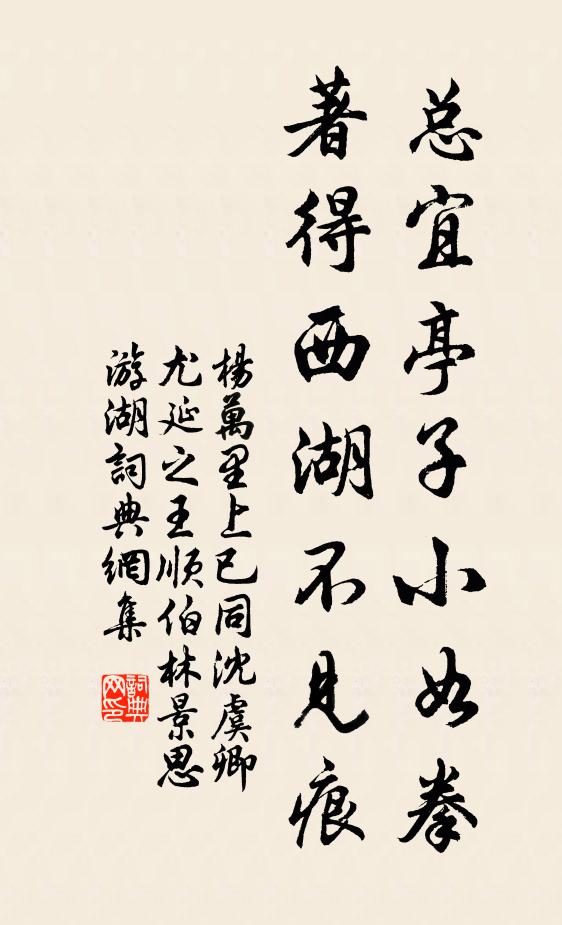 总宜亭子小如拳
著得西湖不見痕
楊萬里上巳同沈虞卿
尤延之王順伯林景思
游湖詞典網集
詞典网印